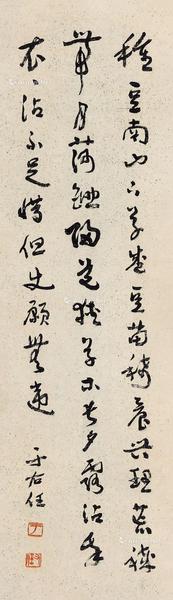 種豆南山下草盛豆苗稀晨興理荒穢
帶月荷鋤歸道狹草木長夕露沾我
衣〻沾不足惜但使願無違
于右任